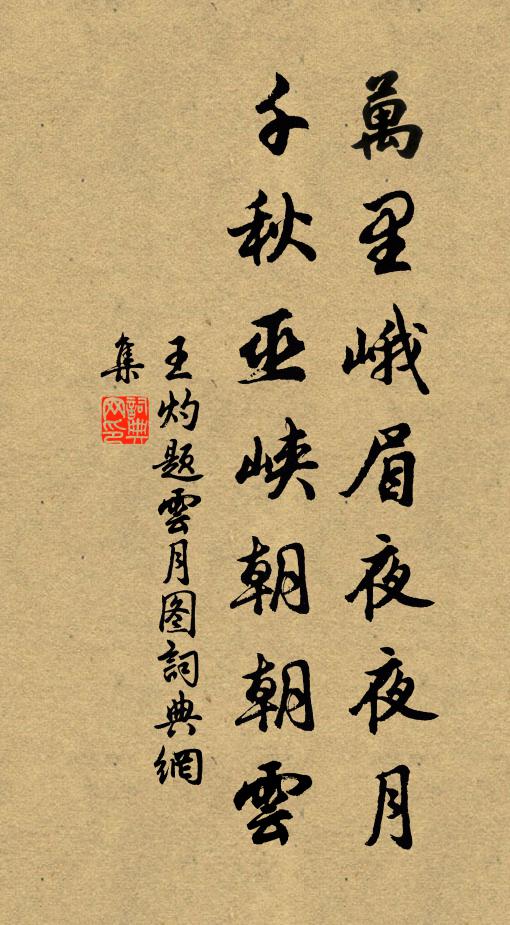 萬里峨眉夜夜月
千秋巫峽朝朝雲
王灼題雲月图詞典網
集
詞典
网印